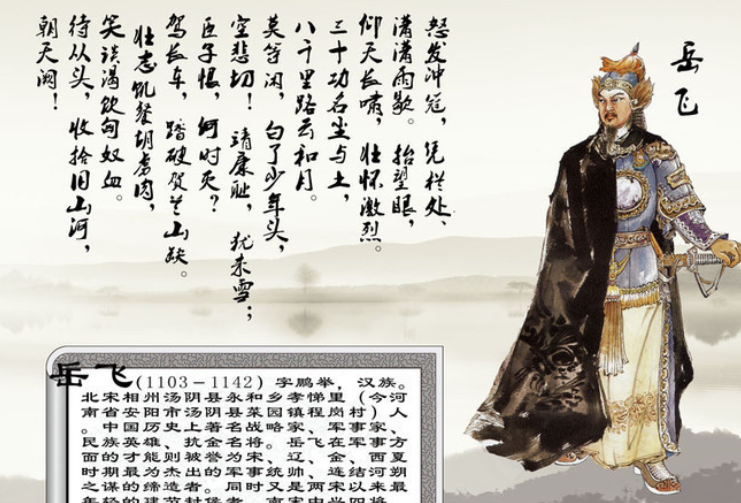 岳飞
怒发冲冠,凭栏处、
潇潇雨歇。抬望眼,
仰天长啸,壮怀激烈。
三十功名尘与土,
八千里路云和月。
莫等闲,白了少年头,
空悲切!靖康耻,犹未雪;
臣子恨,何时灭?
驾长车,踏破贺兰山缺。
壮志饥餐胡虏肉,
笑谈渴饮匈奴血。
待从头,收拾旧山河,
朝天阙!
岳飞(1103-1142)字鹏举,汉族。
北宋相州汤阴县永和乡孝悌里(今河
南省安阳市汤阴县菜园镇程岗村)人
。中国历史上著名战略家、军事家、
民族英雄、抗金名将。岳飞在军事方
面的才能则被誉为宋、辽、金、西夏
时期最为杰出的军事统帅、连结河朔
之谋的缔造者。同时又是两宋以来最
年轻的建节封侯者。南宋中兴四将